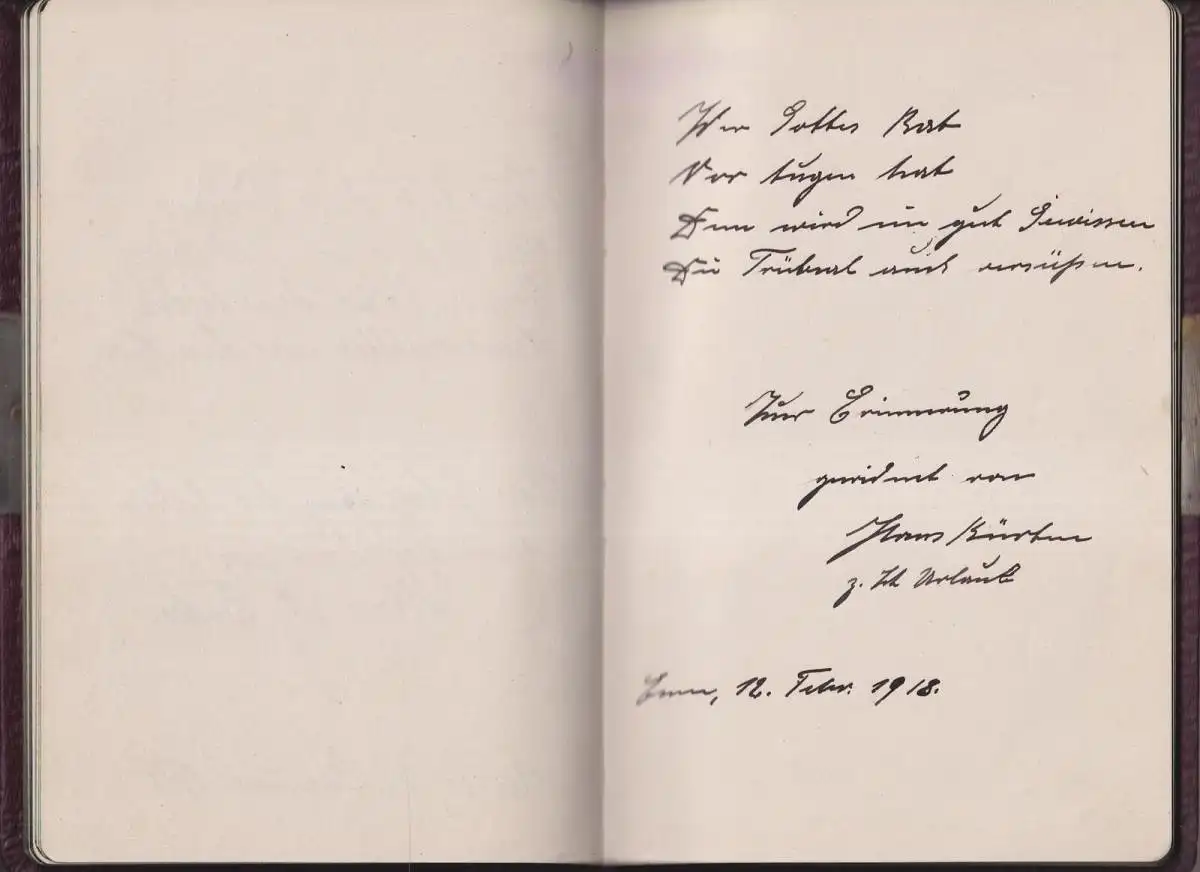 Wer Gottes Rat
Vor Augen hat
Dem wird ein gut Gewissen
Die Trübsal auch versüßen.
Zur Erinnerung
gewidmet von
Hans Kürten
z. Zt Urlaub
12. Febr. 1918.